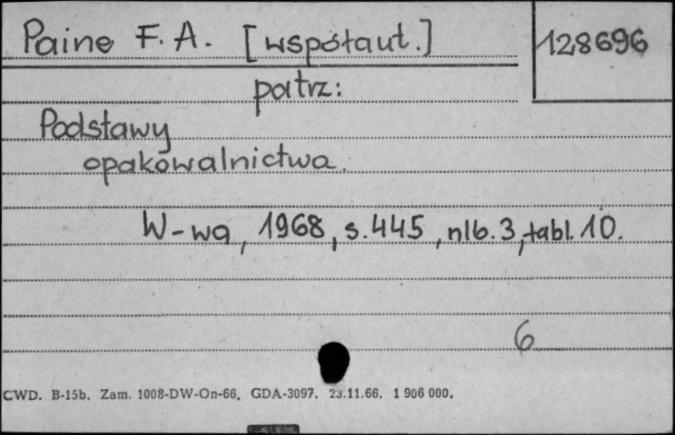 Paine F. A. [współaut.]
128696
patrz:
Podstawy
opakowalnictwa.
W-wa, 1968, s. 445, nlb. 3, tabl. 10.
6
CWD. B-15b. Zam. 1008-DW-On-66. GDA-3097. 23.11.66. 1 906 000.